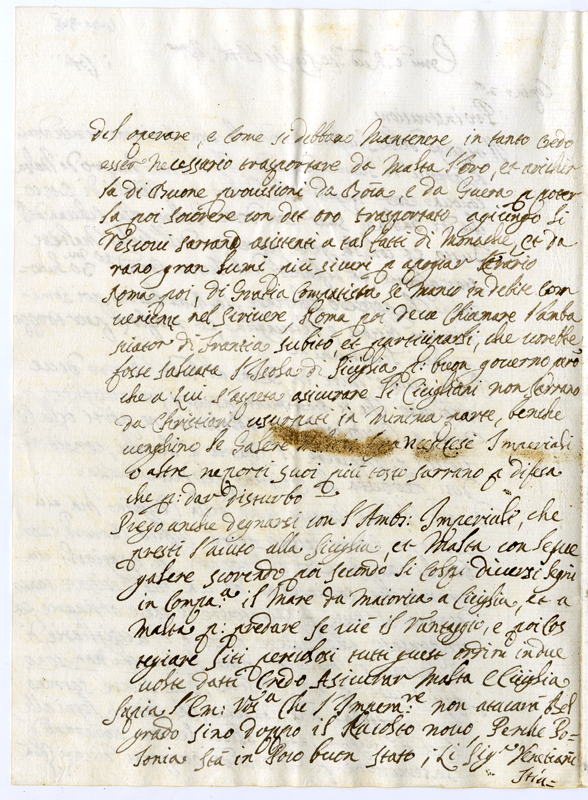 del operare, e Come si debbano Mantenere in tanto Credo
esser Necessario trasportare da Malta l'oro, et arichir
la di Buone provisioni da Bocca, e da Guerra p poter
la poi socorere con det oro trasportato agiungo li
Vescovi sarrano asistenti a tal fatti di Monache, et da
rano gran lumi più siveri p
Roma poi, di Gratia Compatisca se Manco in debite Con
venienze nel scrivere, Roma poi deve Chiamare l'amba
sciator di Francia subito, et participarli, che vorrebbe
fosse salvata l'Isola di Siciglia p: buon governo però
che a lui s'aspeta asicurare li Ciciliani non sarrano
da Christiani usurpati in Minima parte, benche
venghino le Galere Francesi Imperiali
o altre ne porti suoi più tosto sarrano p difesa
che p: dar disturbo
Prego anche degnarsi con l'Amb: Imperiali, che
presti l'aiuto alla Siciglia, et Malta con le sue
galere scorendo poi secondo li Colpi diversi legni
in Compa.a il Mare da Maiorica a Ciciglia, et a
Malta p: predare se vi è il vantaggio, e poi Cos
tegiare siti pericolosi tutti quest ordini in due
volte datti Credo Asicurar Malta e Ciciglia
Sapia l'Em: Vos.a che l'Impera.re non atacarà Bel
grado sino doppo il Racolto novo, Perche Po-
lonia stà in Poco buon stato, Li Sig.ri Venetiani
stia-